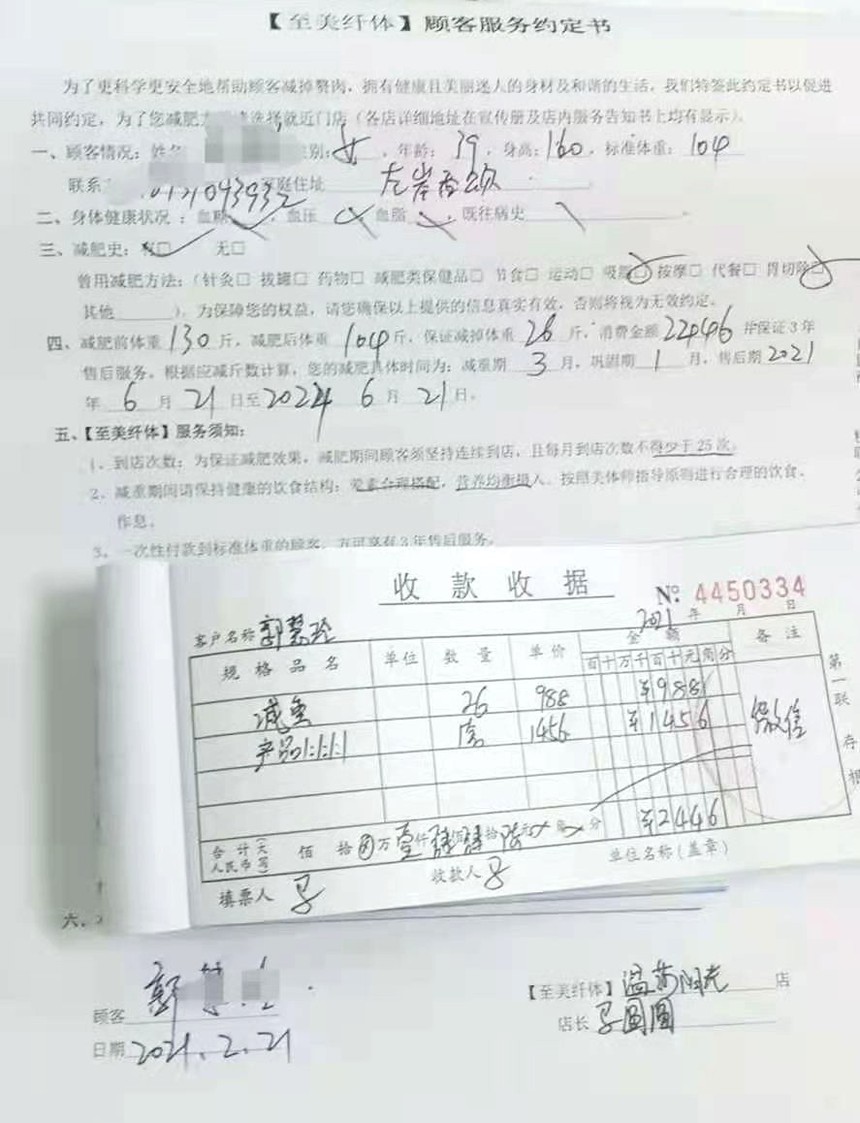 【至美纤体】顾客服务约定书
为了更科学更安全地帮助顾客减掉赘肉，拥有健康且美丽迷人的身材及和谐的生活，我们特签此约定书以促进
共同约定，为了您减肥 选择就近门店（各店详细地址在宣传册及店内服务告知书上均有显示）。
一、顾客情况：姓名 别：女，年龄：39，身高：160，标准体重：104
联系 家庭住址 左岸香颂
二、身体健康状况：血糖 ，血压 血脂 ，既往病史
三、减肥史：有□ 无□
曾用减肥方法：（针灸□ 拔罐□ 药物□ 减肥类保健品□ 节食□ 运动□ 吸脂□ 按摩□ 代餐□ 胃切除□
其他 ），为保障您的权益，请您确保以上提供的信息真实有效，否则将视为无效约定。
四、减肥前体重130斤，减肥后体重104斤，保证减掉体重26斤，消费金额22446并保证3年
售后服务。根据应减斤数计算，您的减肥具体时间为：减重期3月，巩固期1月，售后期2021
年6月21日至2024 6月21日。
五、【至美纤体】服务须知：
1、到店次数：为保证减肥效果，减肥期间顾客须坚持连续到店，且每月到店次数不得少于25次。
2、减重期间请保持健康的饮食结构：荤素合理搭配，营养均衡摄入，按照美体师指导原则进行合理的饮食、
作息。
3、一次性付款到标准体重的顾客，方可享有3年售后服务。
收款收据 № 4450334
客户名称 郭慧玲 2021年 月 日
规格品名 单位 数量 单价 金额 备注
百十万千百十元角分
减重 26 988 ¥988
产品1:1:1:1 1456 ¥1456 微信
¥2446
合计（大写）人民币 佰 拾 万 仟 佰 拾 元 角 分
填票人 收款人 单位名称（盖章）
第一联 存根
六、
顾客 郭
日期 2021.2.21
【至美纤体】温莎阳光 店
店长 圆圆